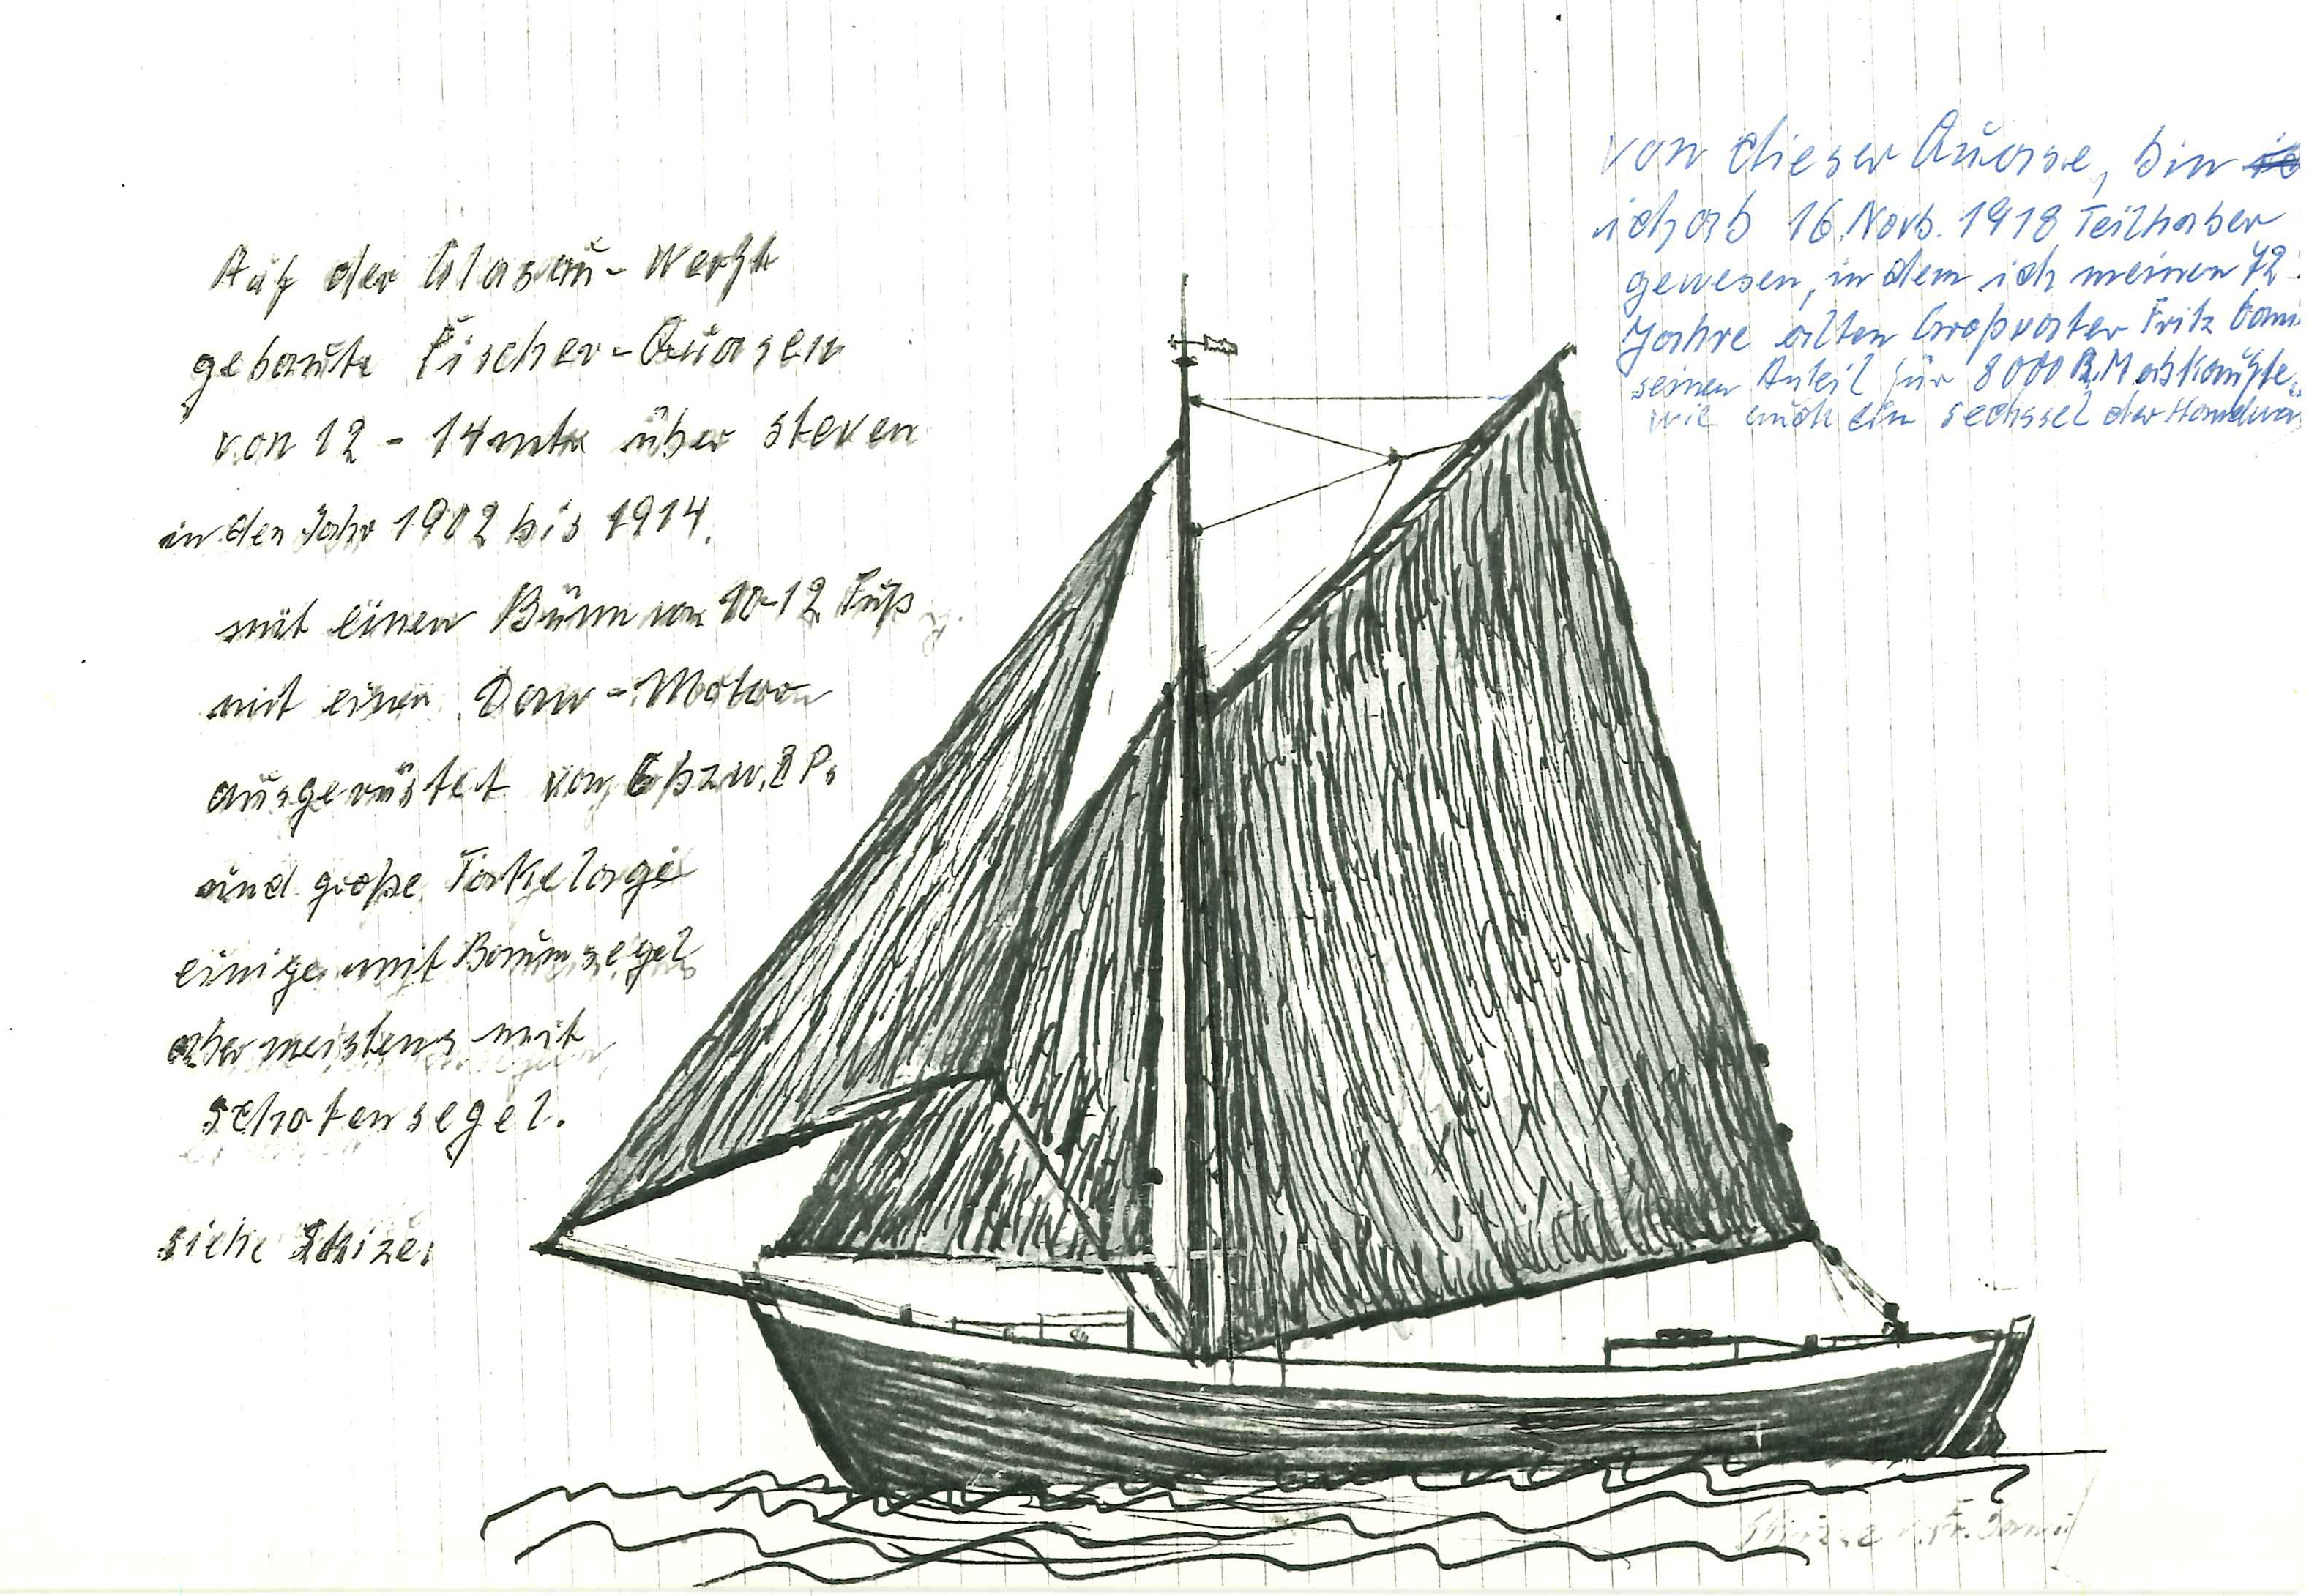 Auf der Glasau-Werft
gebaute Fischer-Quasen
von 12 - 14 mtr über Steven
in den Jahr 1902 bis 1914.
mit einen Bünn von 10-12 Fuß
mit einen Dan-Motoor
ausgerüstet von 6 bzw. 8 Ps
und große Takelage
einige mit Baumsegel
aber meistens mit
schotensegel.
siehe Skize.
von dieser Quase, bin
ich ab 16. Novb. 1918 Teilhaber
gewesen, in dem ich meinen 72
Jahre alten Großvater Fritz
seinen Anteil für 8000 R.M abkaufte,
wie auch ein sechssel der
Skizze v. Fr.